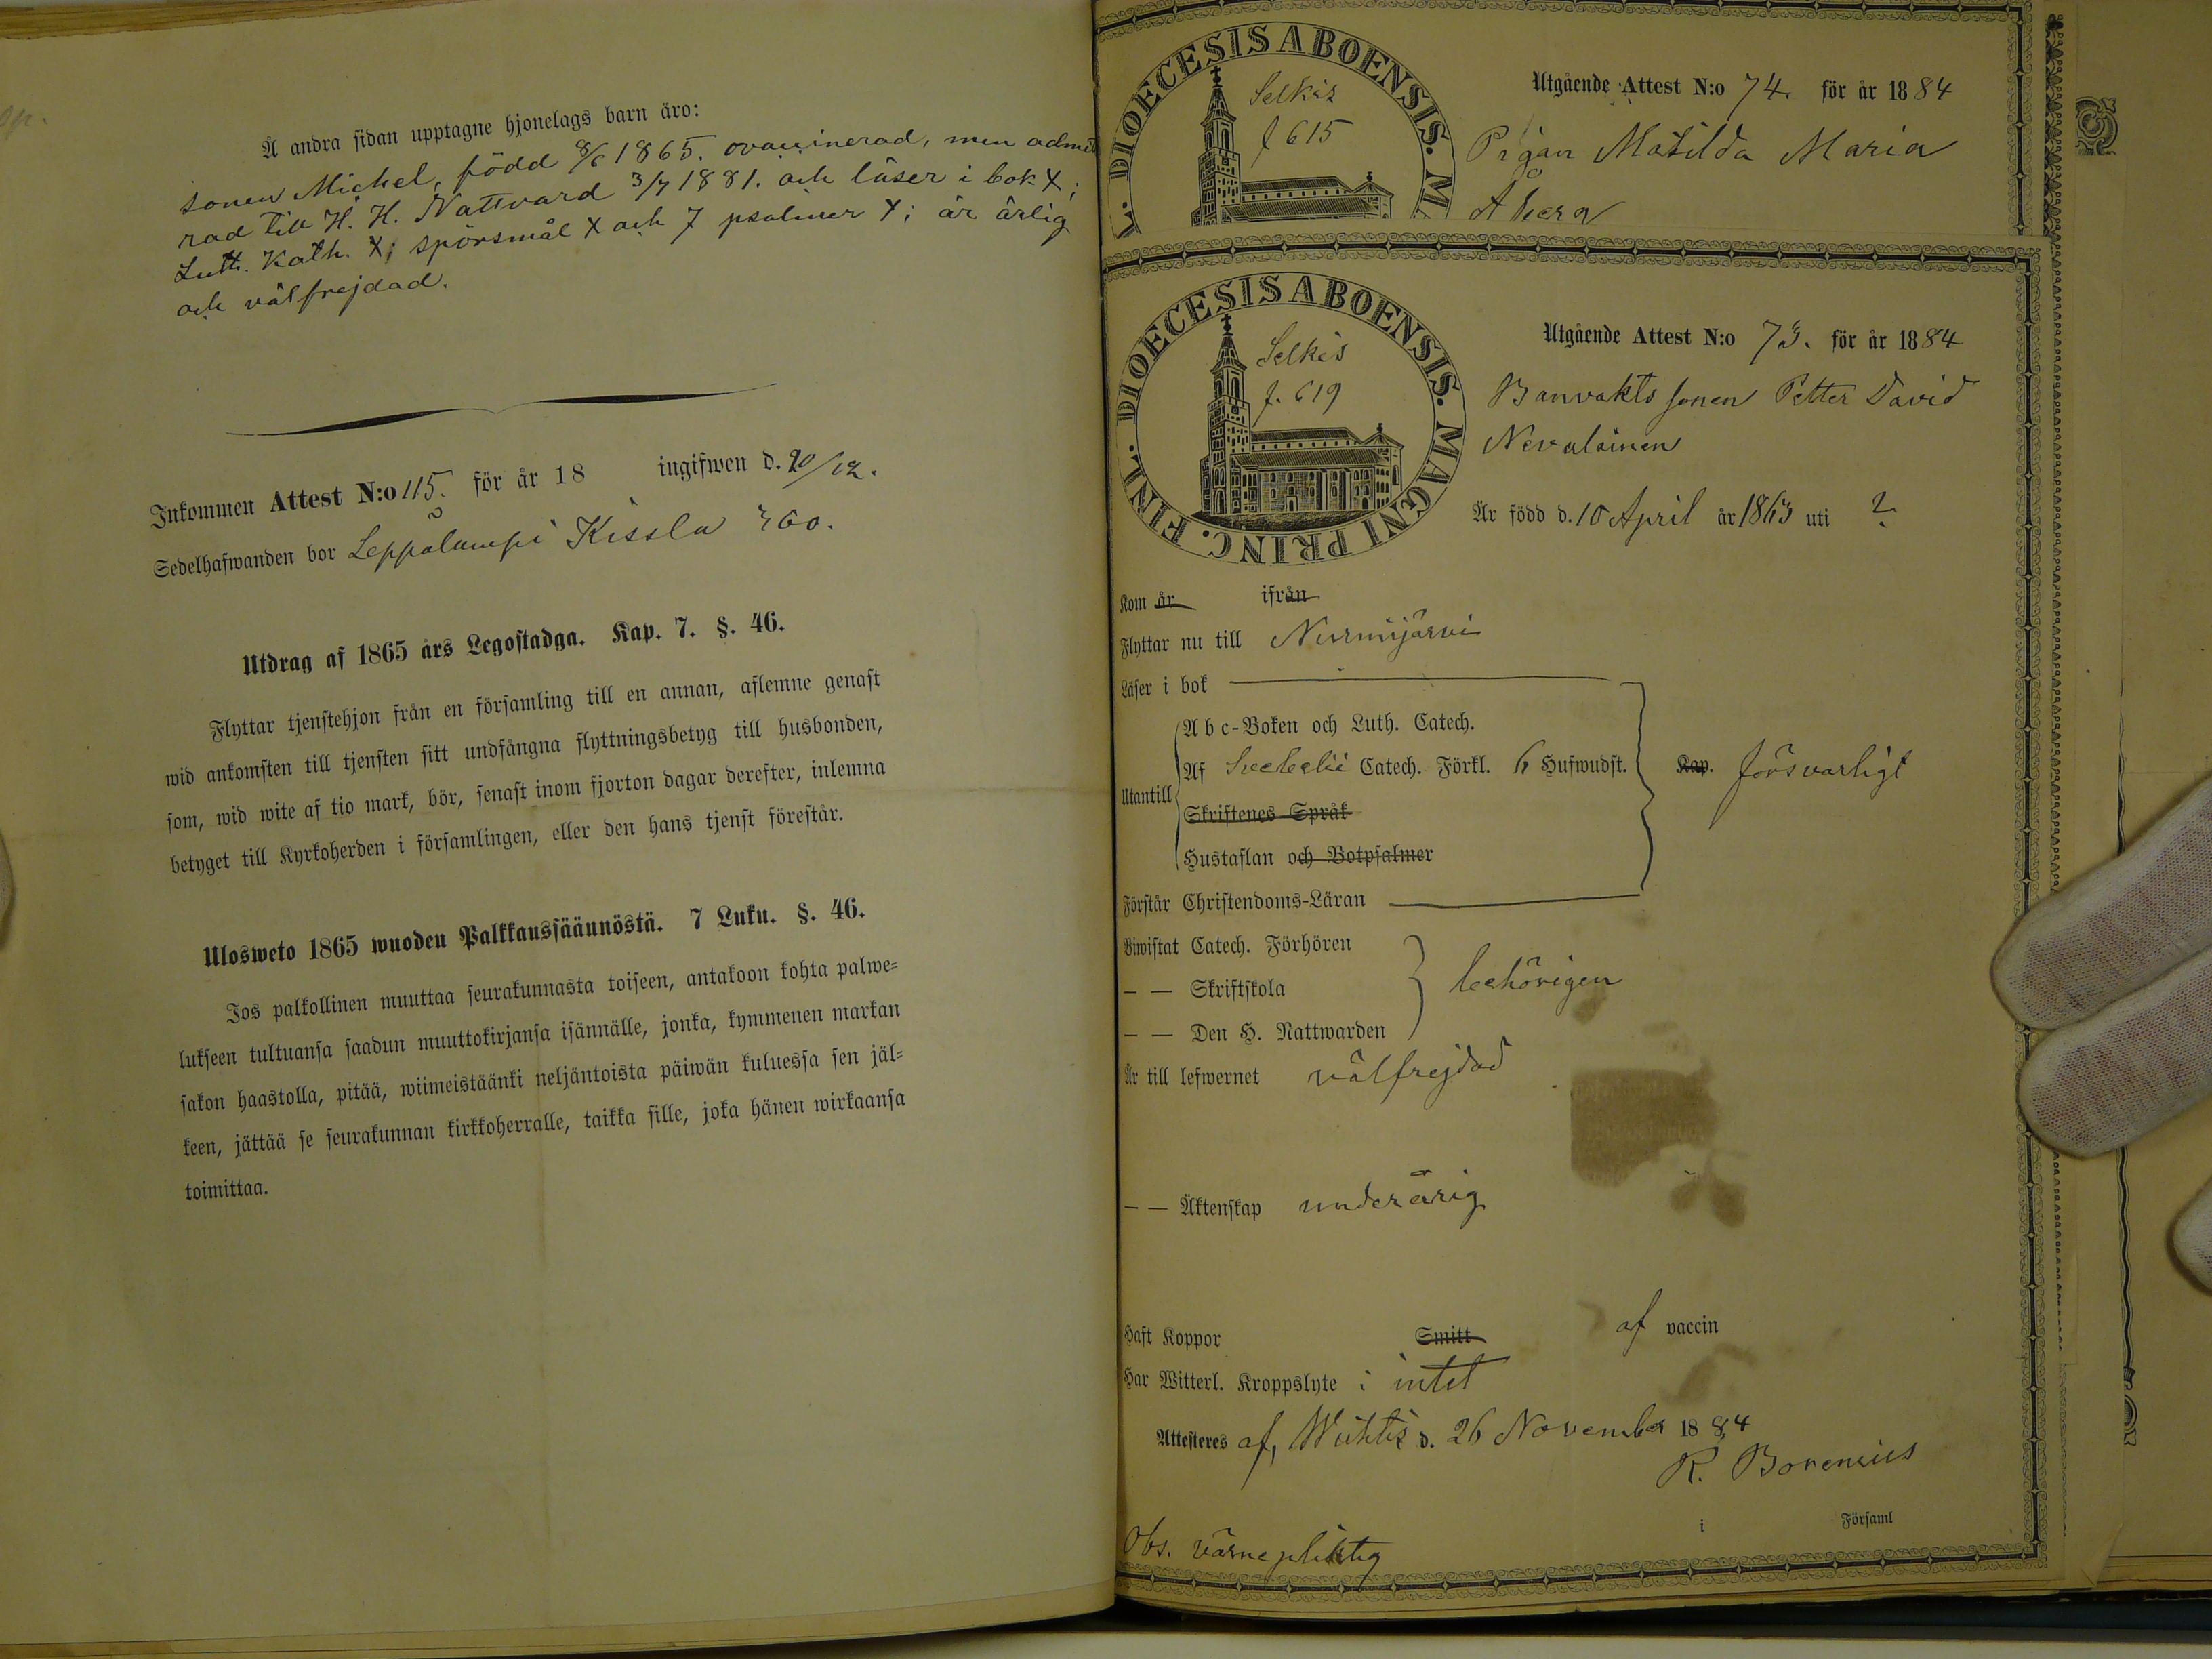 Å andra sidan upptagne hjonelags barn äro:
sonen Michel, född 8/6 1865. ovaccinerad, men admitte
rad till H. H. Nattvard 3/7 1881. och läser i bok X;
Luth. Kath. X; spörsmål X och 7 psalmer X; är ärlig
och välfrejdad.
Inkommen Attest N:o 115. för år 18 ingifwen d. 20/12.
Sedelhafwanden bor Leppälampi Kissla 360.
Utdrag af 1865 års Legostadga. Kap. 7. §. 46.
Flyttar tjenstehjon från en församling till en annan, aflemne genast
wid ankomsten till tjensten sitt undfångna flyttningsbetyg till husbonden,
som, wid wite af tio mark, bör, senast inom fjorton dagar derefter, inlemna
betyget till Kyrkoherden i församlingen, eller den hans tjenst förestår.
Ulosweto 1865 wuoden Palkkaussäännöstä. 7 Luku. §. 46.
Jos palkollinen muuttaa seurakunnasta toiseen, antakoon kohta palwe=
lukseen tultuansa saadun muuttokirjansa isännälle, jonka, kymmenen markan
sakon haastolla, pitää, wiimeistäänki neljäntoista päiwän kuluessa sen jäl=
keen, jättää se seurakunnan kirkkoherralle, taikka sille, joka hänen wirkaansa
toimittaa.
L. DIOECESIS ABOENSIS. M
Selkis
f 615
Utgående Attest N:o 74. för år 1884
Pigan Matilda Maria
Åberg
FINL. DIOECESIS ABOENSIS. MAGNI PRINC.
Selkis
f. 619
Utgående Attest N:o 73. för år 1884
Banvakts sonen Petter David
Nevalainen
Är född d. 10 April år 1863 uti ?
Kom år ifrån
Flyttar nu till Nurmijärvi
Läser i bok
A b c-Boken och Luth. Catech.
Utantill Af Svebelii Catech. Förkl. 6 Hufwudst. Kap. försvarligt
Skriftenes Språk
Hustaflan och Botpsalmer
Förstår Christendoms-Läran
Biwistat Catech. Förhören
— — Skriftskola behörigen
— — Den H. Nattwarden
Är till lefwernet välfrejdad
— — Äktenskap underårig
Haft Koppor Smitt af vaccin
Har Witterl. Kroppslyte : intet
Attesteres af, Wichtis d. 26 November 1884
R. Borenius
i Församl
Obs. värnepliktig